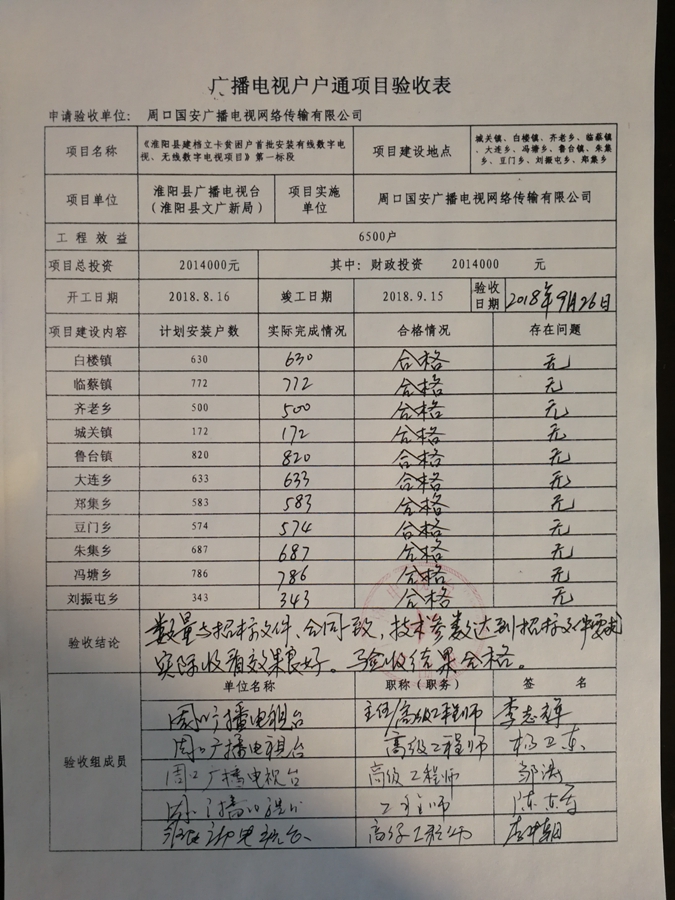 广播电视户户通项目验收表
申请验收单位: 周口国安广播电视网络传输有限公司
项目名称 《淮阳县建档立卡贫困户首批安装有线数字电视、无线数字电视项目》第一标段 项目建设地点 城关镇、白楼镇、齐老乡、临蔡镇、大连乡、冯塘乡、鲁台镇、朱集乡、豆门乡、刘振屯乡、郑集乡
项目单位 淮阳县广播电视台(淮阳县文广新局) 项目实施单位 周口国安广播电视网络传输有限公司
工程效益 6500户
项目总投资 2014000元 其中: 财政投资 2014000 元
开工日期 2018.8.16 竣工日期 2018.9.15 验收日期 2018年9月26日
项目建设内容 计划安装户数 实际完成情况 合格情况 存在问题
白楼镇 630 630 合格 无
临蔡镇 772 772 合格 无
齐老乡 500 500 合格 无
城关镇 172 172 合格 无
鲁台镇 820 820 合格 无
大连乡 633 633 合格 无
郑集乡 583 583 合格 无
豆门乡 574 574 合格 无
朱集乡 687 687 合格 无
冯塘乡 786 786 合格 无
刘振屯乡 343 343 合格 无
验收结论 数量与招标文件、合同一致,技术参数达到招标文件要求
实际收看效果良好。验收结果合格。
验收组成员 单位名称 职称(职务) 签名
周口广播电视台 主任/高级工程师 李志
周口广播电视台 高级工程师 杨卫东
周口广播电视台 高级工程师 邹涛
陈东
高级工程师